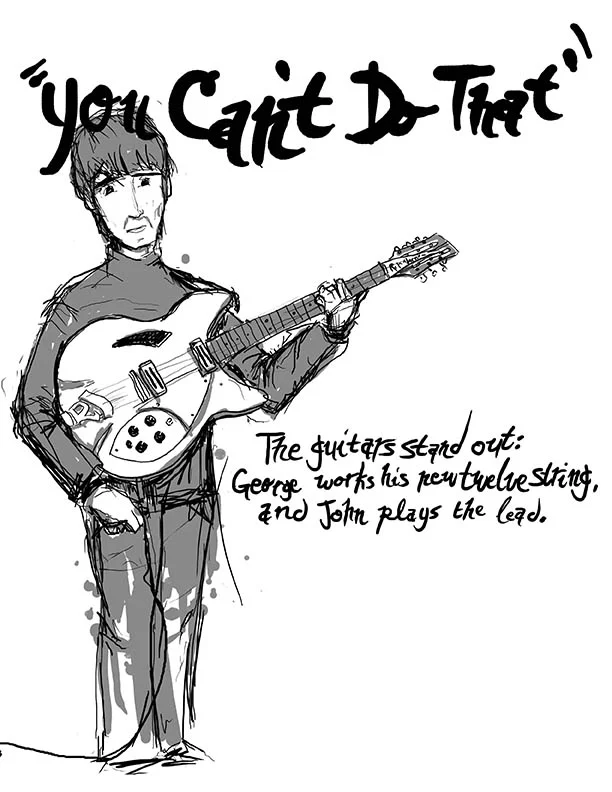 "You Can't Do That"
The guitars stand out:
George works his new twelve string,
and John plays the lead.